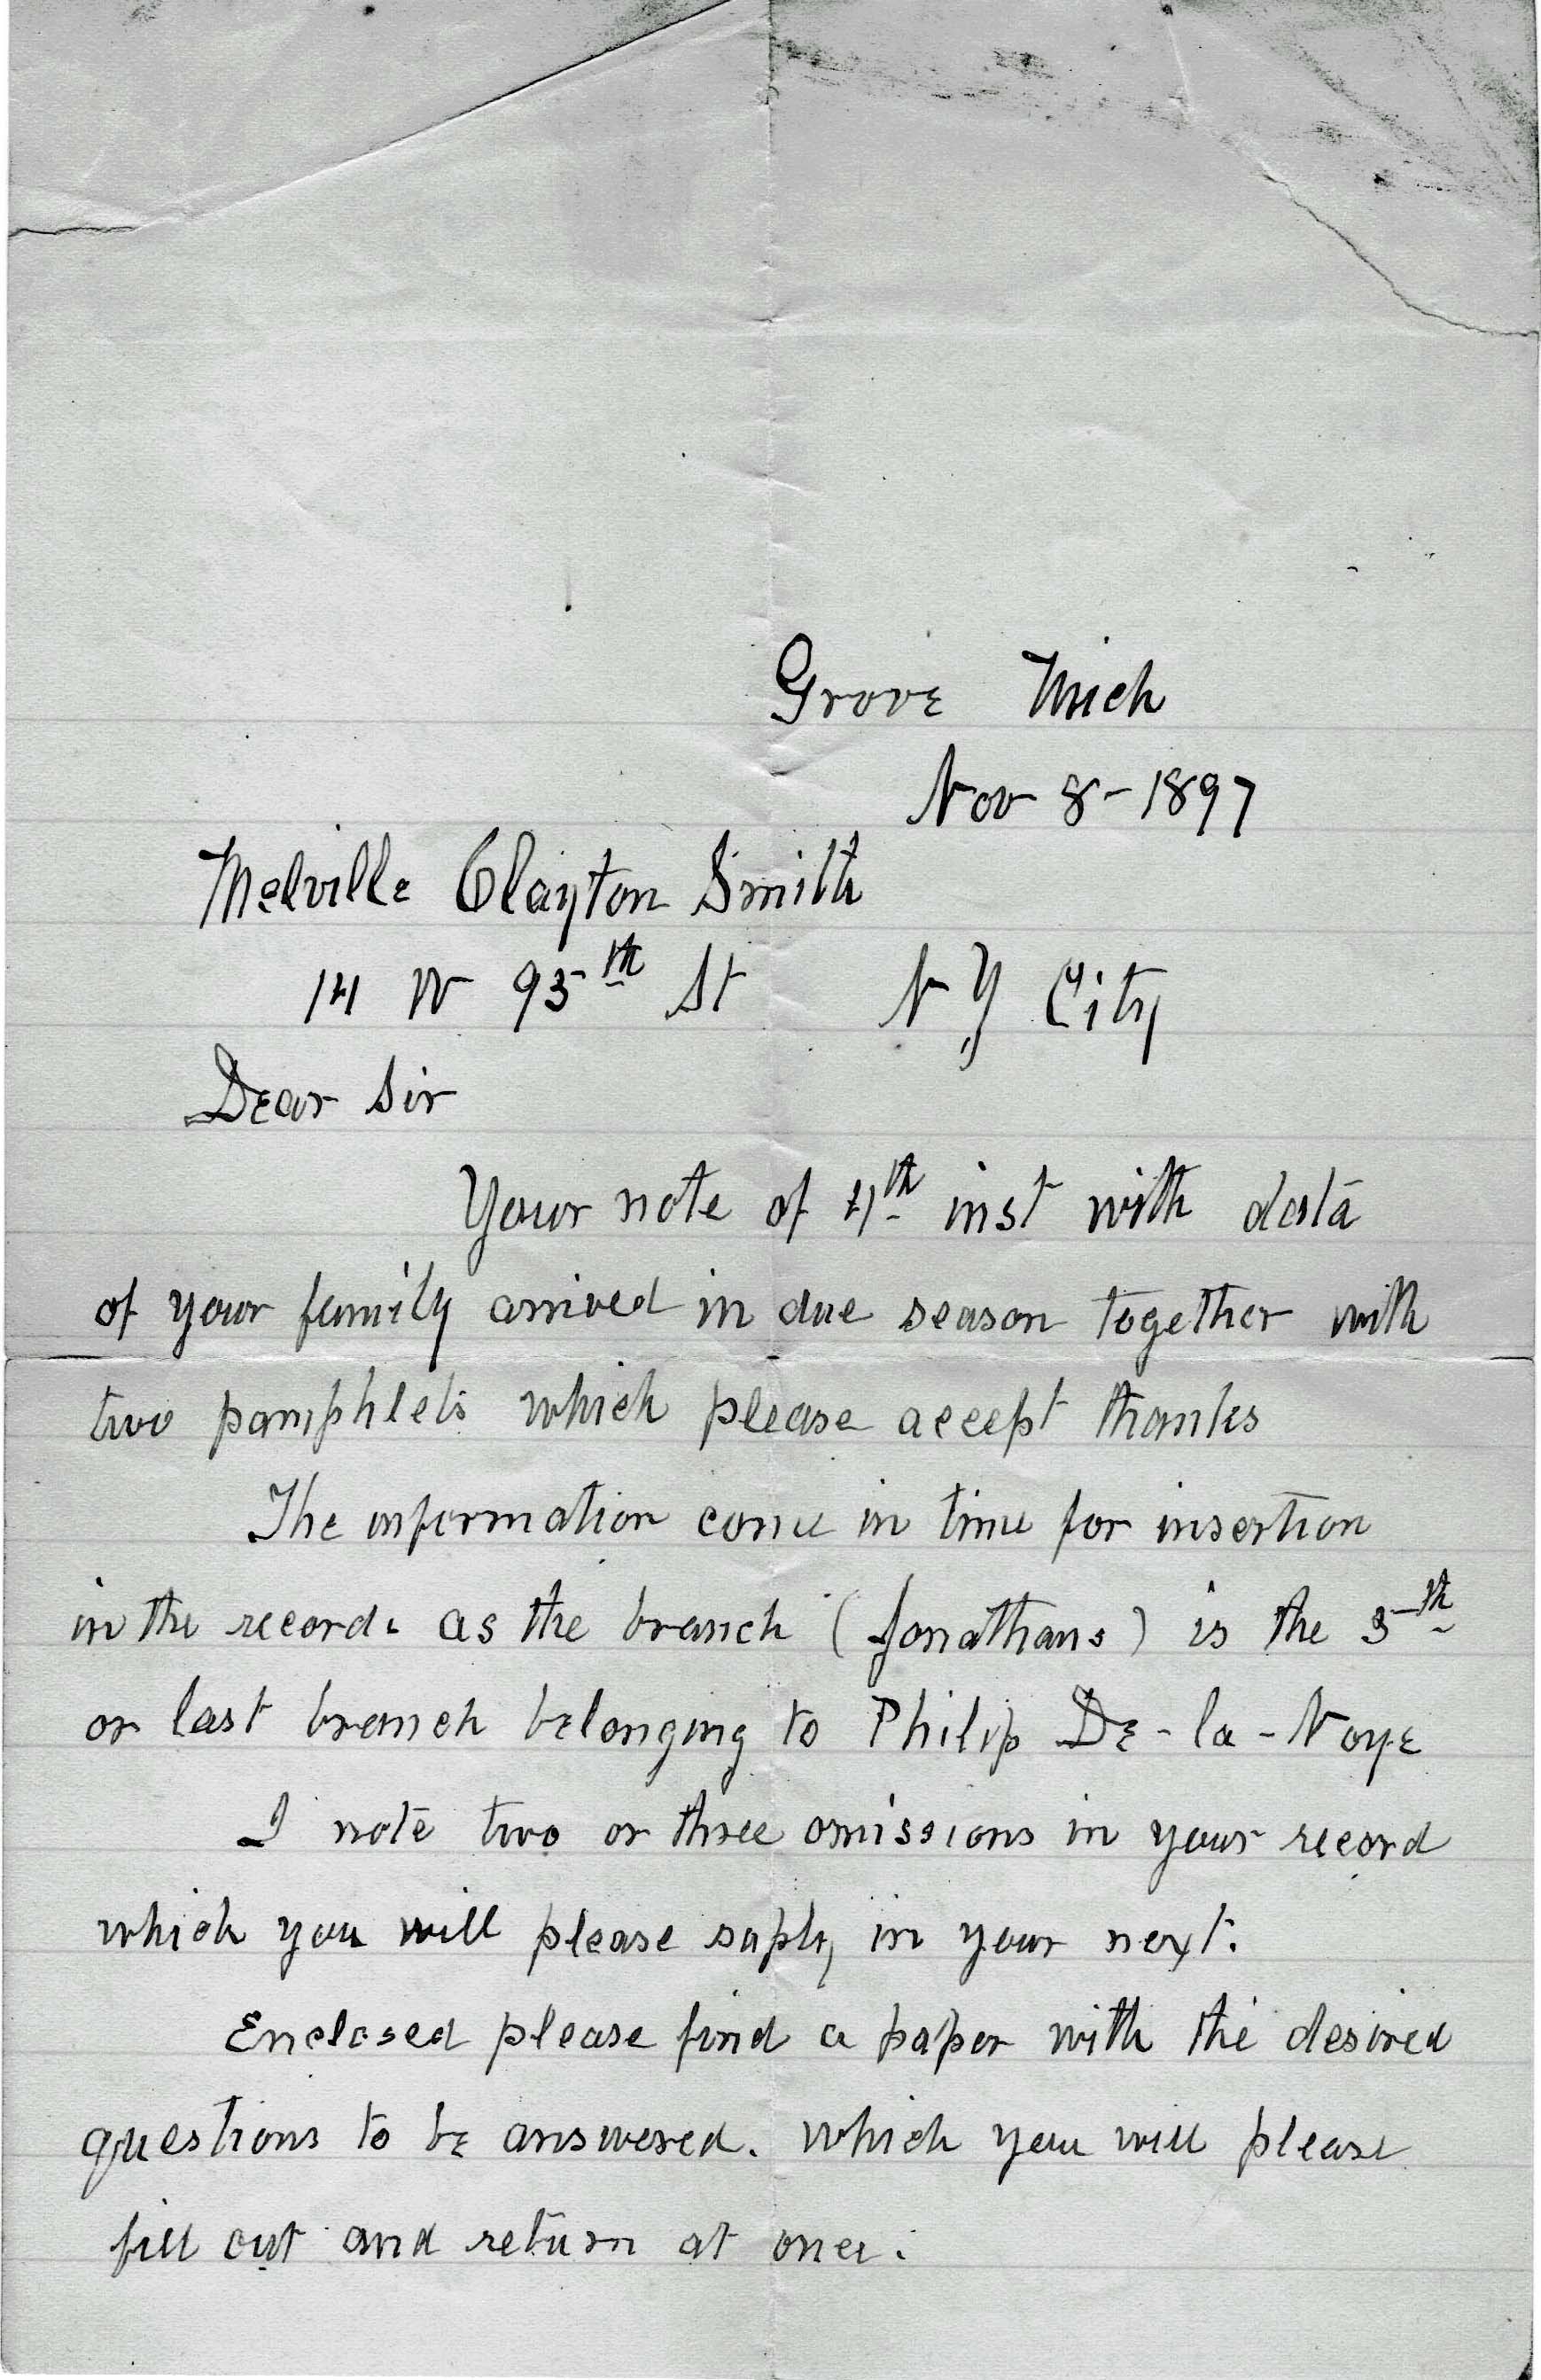 Grove Mich
Nov 8-1897
Melville Clayton Smith
14 W 95th St N Y City
Dear Sir
Your note of 4th inst with data
of your family arrived in due season together with
two pamphlets which please accept thanks
The information come in time for insertion
in the record. as the branch (Jonathans) is the 5th
or last branch belonging to Philip De-la-Noye
I note two or three omissions in your record
which you will please suply in your next.
Enclosed please find a paper with the desired
questions to be answered. which you will please
fill out and return at once.